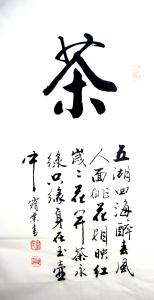 茶
五湖四海醉春风
人面桃花相映红
岁岁花开茶永
绿只缘身在玉壶
中